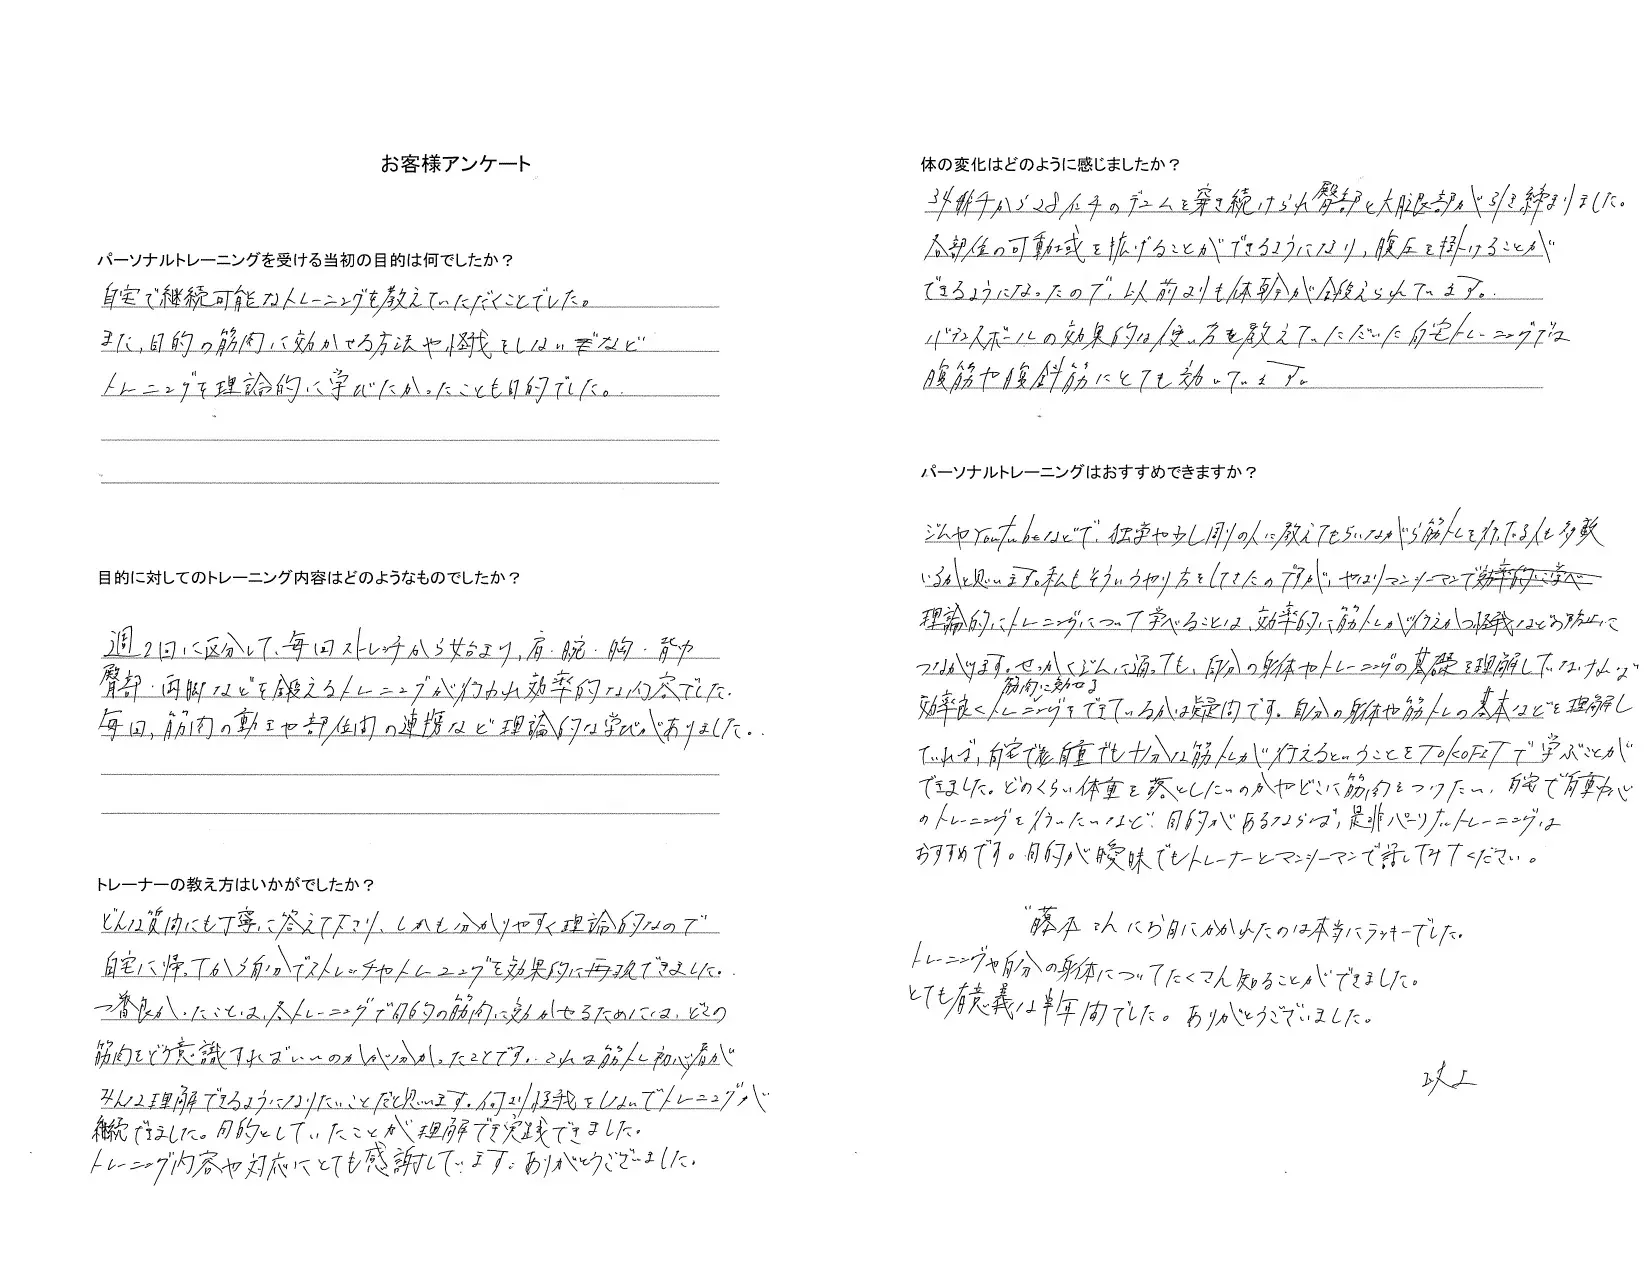 お客様アンケート
パーソナルトレーニングを受ける当初の目的は何でしたか？
自宅で継続可能なトレーニングを教えていただくことでした。
また、目的の筋肉に効かせる方法や怪我をしないなど
トレーニングを理論的に学びたかったことも目的でした。
目的に対してのトレーニング内容はどのようなものでしたか？
週2回に区分して、毎回ストレッチから始まり、肩・腕・胸・背中
臀部・両脚などを鍛えるトレーニングが行われ効率的な内容でした。
毎回、筋肉の動きや部位間の連携など理論的な学びがありました。
トレーナーの教え方はいかがでしたか？
どんな質問にも丁寧に答えて下さり、しかも分かりやすく理論的なので
自宅に帰ってから自分でストレッチやトレーニングを効果的に再現できました。
一番良かったことは、各トレーニングで目的の筋肉に効かせるためには、どこの
筋肉をどう意識すればいいのかが分かったことです。これは筋トレ初心者が
みんな理解できるようになりたいことだと思います。何より怪我をしないでトレーニングが
継続できました。目的としていたことが理解でき実践できました。
トレーニング内容や対応にとても感謝しています。ありがとうございました。
体の変化はどのように感じましたか？
34インチから28インチのデニムを穿き続けられ臀部と大腿部が引き締まりました。
各部位の可動域を拡げることができるようになり、腹圧を掛けることが
できるようになったので、以前よりも体幹が鍛えられています。
バランスボールの効果的な使い方を教えていただいた自宅トレーニングでは
腹筋や腹斜筋にとても効いています。
パーソナルトレーニングはおすすめできますか？
ジムやYouTubeなどで、独学や少し周りの人に教えてもらいながら筋トレを行ってる人も多数
いるかと思います。私もそういうやり方をしてきたのですが、やはりマンツーマンで効率的に学べ
理論的にトレーニングについて学べることは、効率的に筋トレが行えかつ怪我などの防止に
つながります。せっかくジムに通っても、自分の身体やトレーニングの基礎を理解していなければ
筋肉に効かせる
効率良くトレーニングをできているかは疑問です。自分の身体や筋トレの基本などを理解し
ていれば、自宅で自重でも十分な筋トレが行えるということをTOKOFITで学ぶことが
できました。どのくらい体重を落としたいのかやどこに筋肉をつけたい、自宅で自重
のトレーニングを行いたいなど、目的があるならば、是非パーソナルトレーニングは
おすすめです。目的が曖昧でもトレーナーとマンツーマンで話してみてください。
藤本さんにお目にかかれたのは本当にラッキーでした。
トレーニングや自分の身体についてたくさん知ることができました。
とても有意義な半年間でした。ありがとうございました。
以上